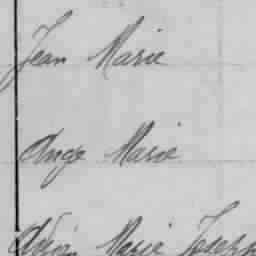 Jean Marie
Ange Marie
Marie Joseph